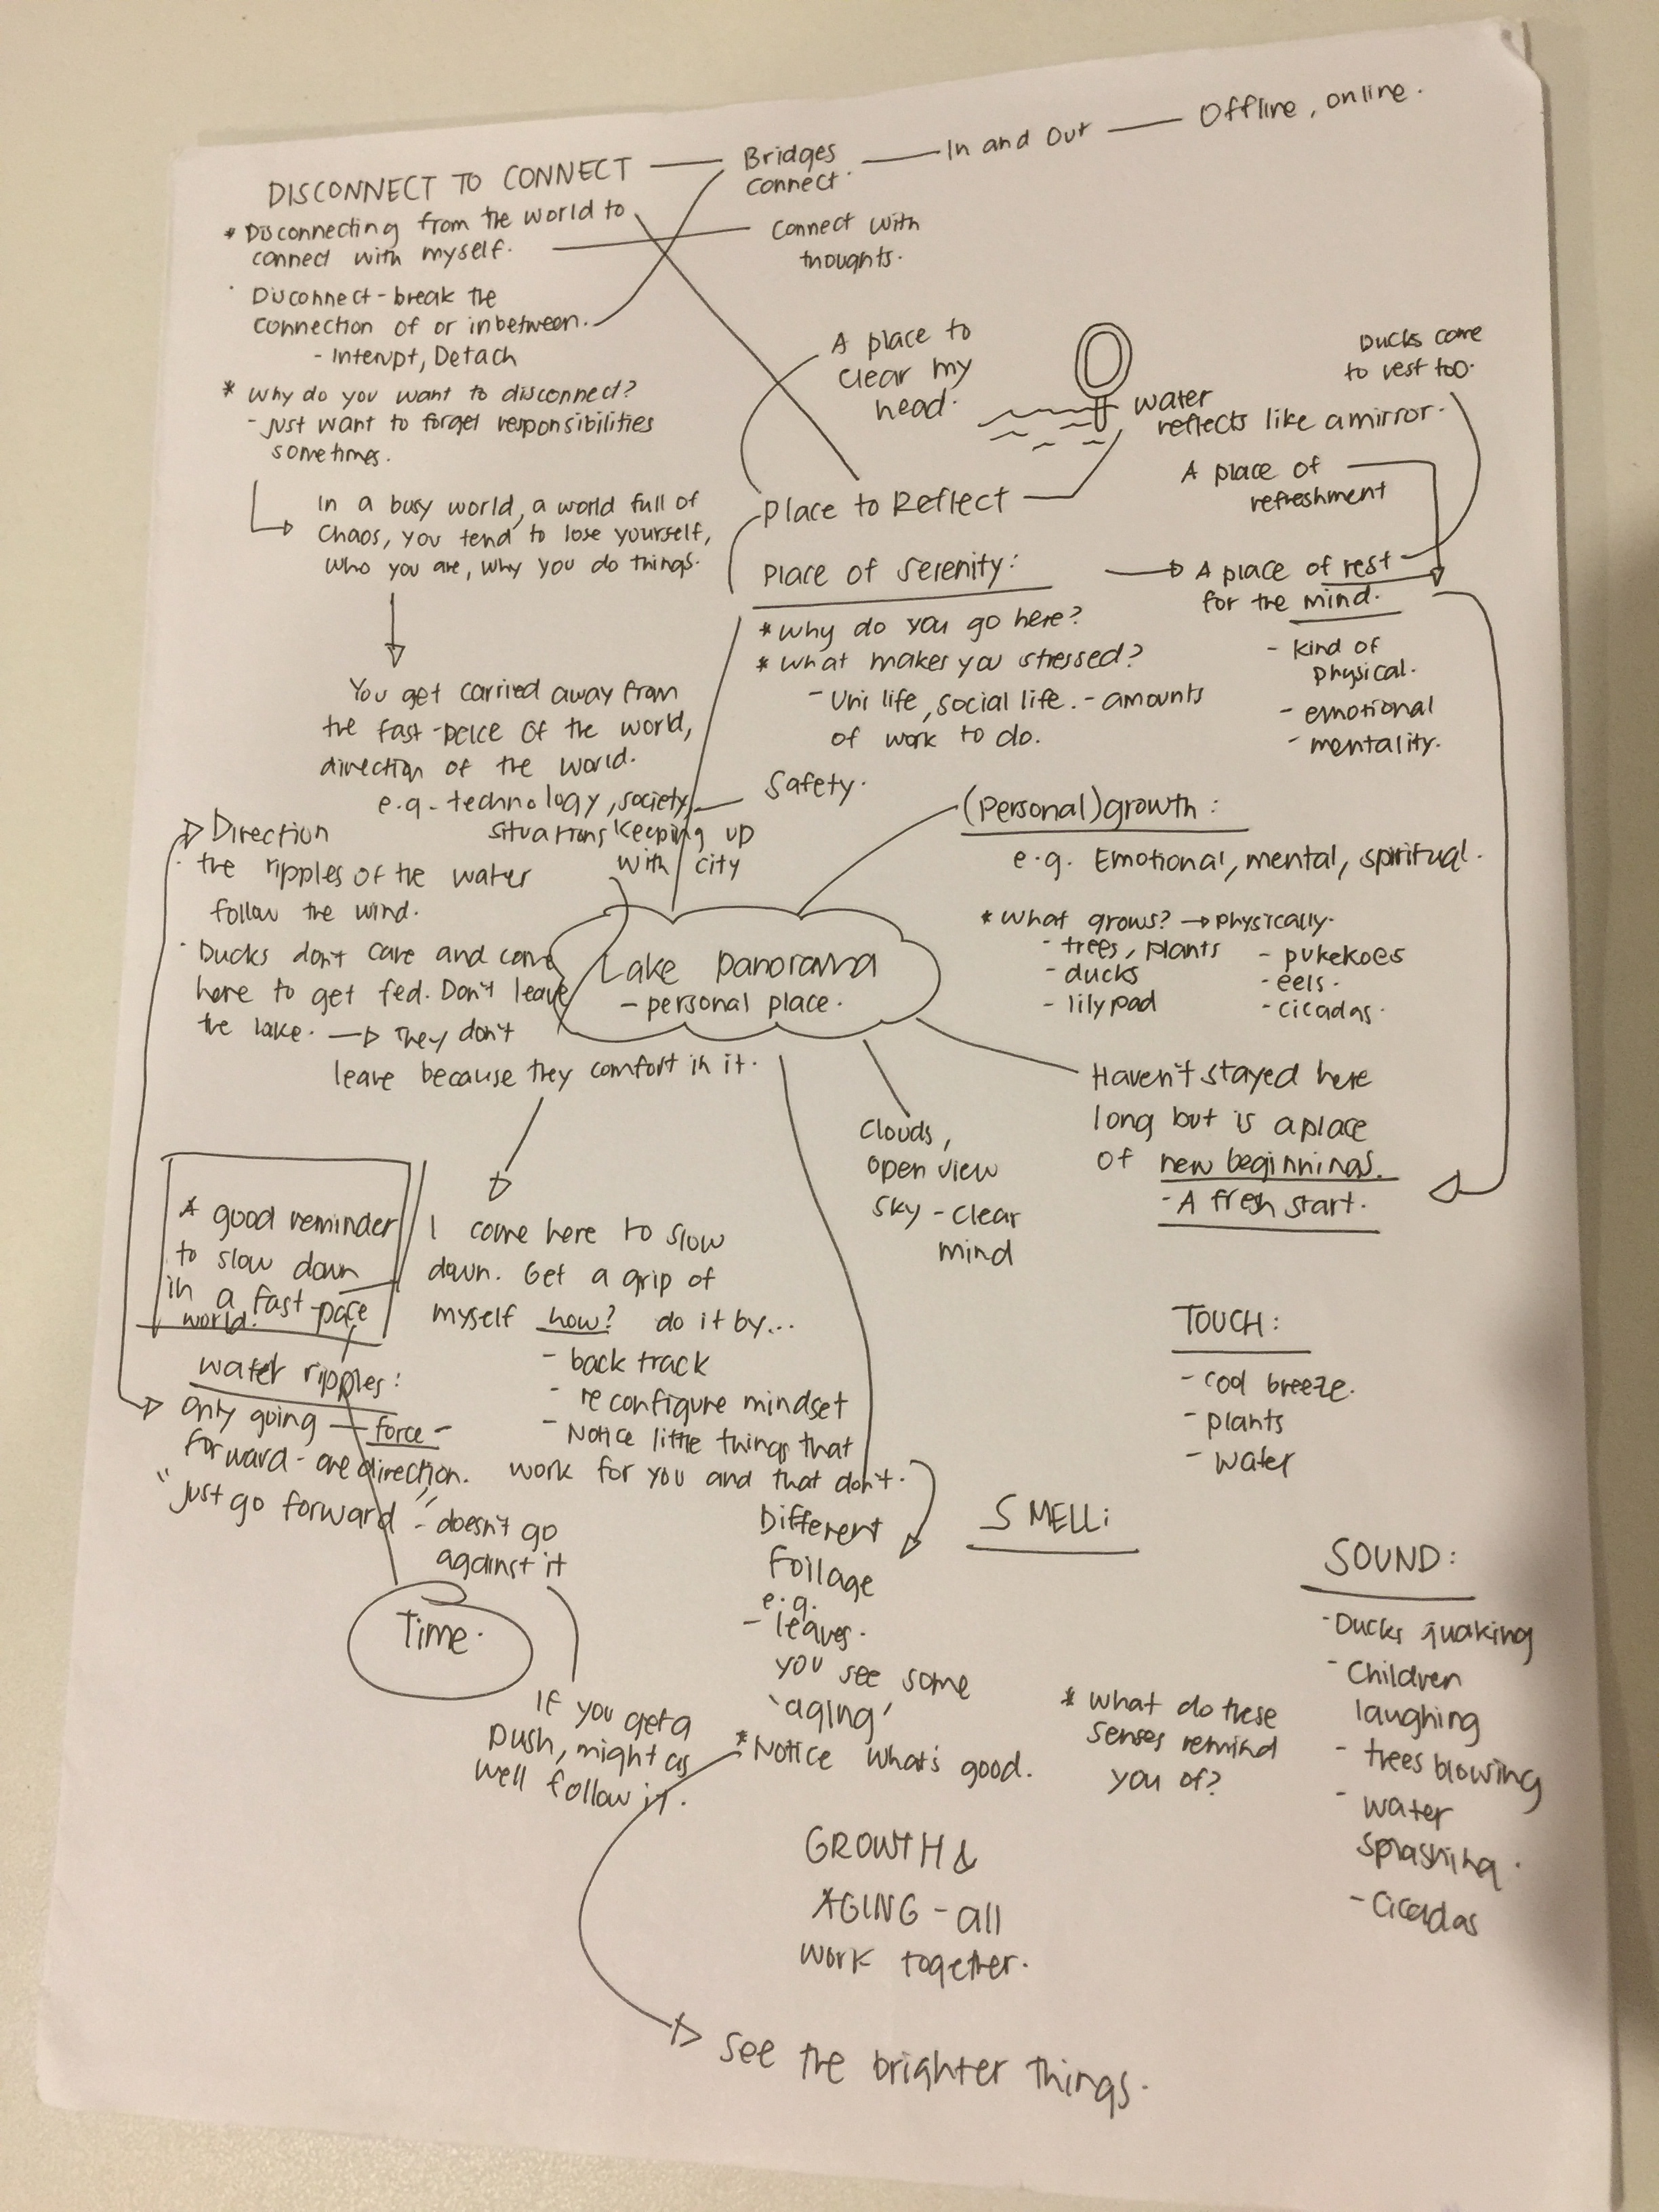 DISCONNECT TO CONNECT
Bridges
connect.
In and Out
Offline, online.
* Disconnecting from the world to
connect with myself.
Connect with
thoughts.
Disconnect - break the
connection of or inbetween.
- Interupt, Detach
* Why do you want to disconnect?
- Just want to forget responsibilities
sometimes.
In a busy world, a world full of
Chaos, you tend to lose yourself,
who you are, why you do things.
You get carried away from
the fast-pace of the world,
direction of the world.
e.g. technology, society,
situations keeping up
with city
A place to
clear my
head.
water
reflects like a mirror.
Ducks come
to rest too.
Place to Reflect
A place of
refreshment
Place of Serenity:
A place of rest
for the mind.
- kind of
physical.
- emotional
- mentality.
* Why do you go here?
* What makes you stressed?
- Uni life, social life. - amounts
of work to do.
Safety.
(Personal) growth:
e.g. Emotional, mental, spiritual.
* What grows? → physically.
- trees, plants
- ducks
- lilypad
- pukekoes
- eels.
- cicadas.
Direction
the ripples of the water
follow the wind.
Ducks don't care and come
here to get fed. Don't leave
the lake. → They don't
leave because they comfort in it.
Lake panorama
- personal place.
Haven't stayed here
long but is a place
of new beginnings.
- A fresh start.
Clouds,
open view
sky - clear
mind
A good reminder
to slow down
in a fast-pace
world.
I come here to slow
down. Get a grip of
myself how? do it by...
- back track
- re configure mindset
- Notice little things that
work for you and that don't.
water ripples:
Only going - force -
forward - one direction.
"Just go forward"
- doesn't go
against it
Time.
If you get a
push, might as
well follow it.
Different
Foilage
e.g.
- leaves.
you see some
'aging'
* Notice what's good.
TOUCH:
- cool breeze.
- plants
- water
SMELL:
SOUND:
- Ducks quaking
- Children
laughing
- trees blowing
- water
splashing.
- Cicadas
* What do these
senses remind
you of?
GROWTH &
AGING - all
work together.
See the brighter things.